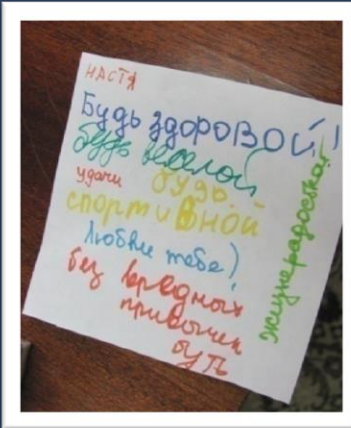 НАСТЯ
Будь здоровой!
будь веселой
удачи будь
спортивной
Любви тебе!
без вредных
привычек
буть
жизнерадостной!